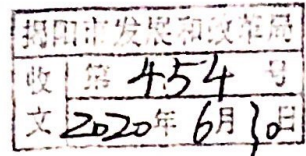 揭阳市发展和改革局
收 第 454 号
文 2020年 6月30日